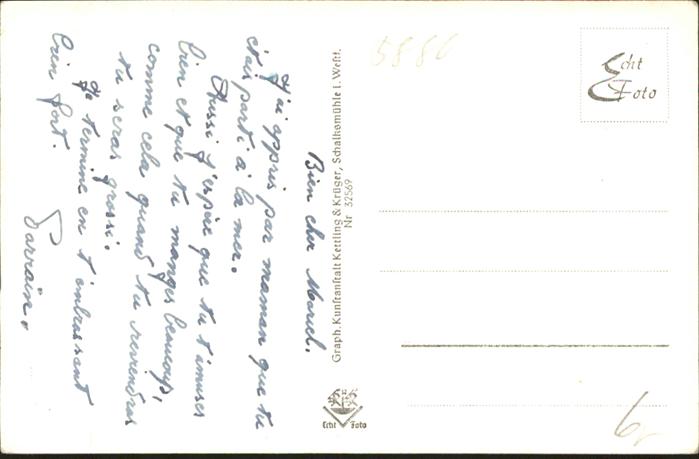 Bien cher Marcel.
J'ai appris par maman que tu
étais parti à la mer.
Aussi j'espère que tu t'amuses
bien et que tu manges beaucoup,
comme cela quand tu reviendras
tu seras grossi.
Je termine en t'embrassant
bien fort.
Parrain.
Graph. Kunstanstalt Kettling & Krüger, Schalksmühle i. Westf.
Nr 32569
5886
Echt
Foto
Echt Foto